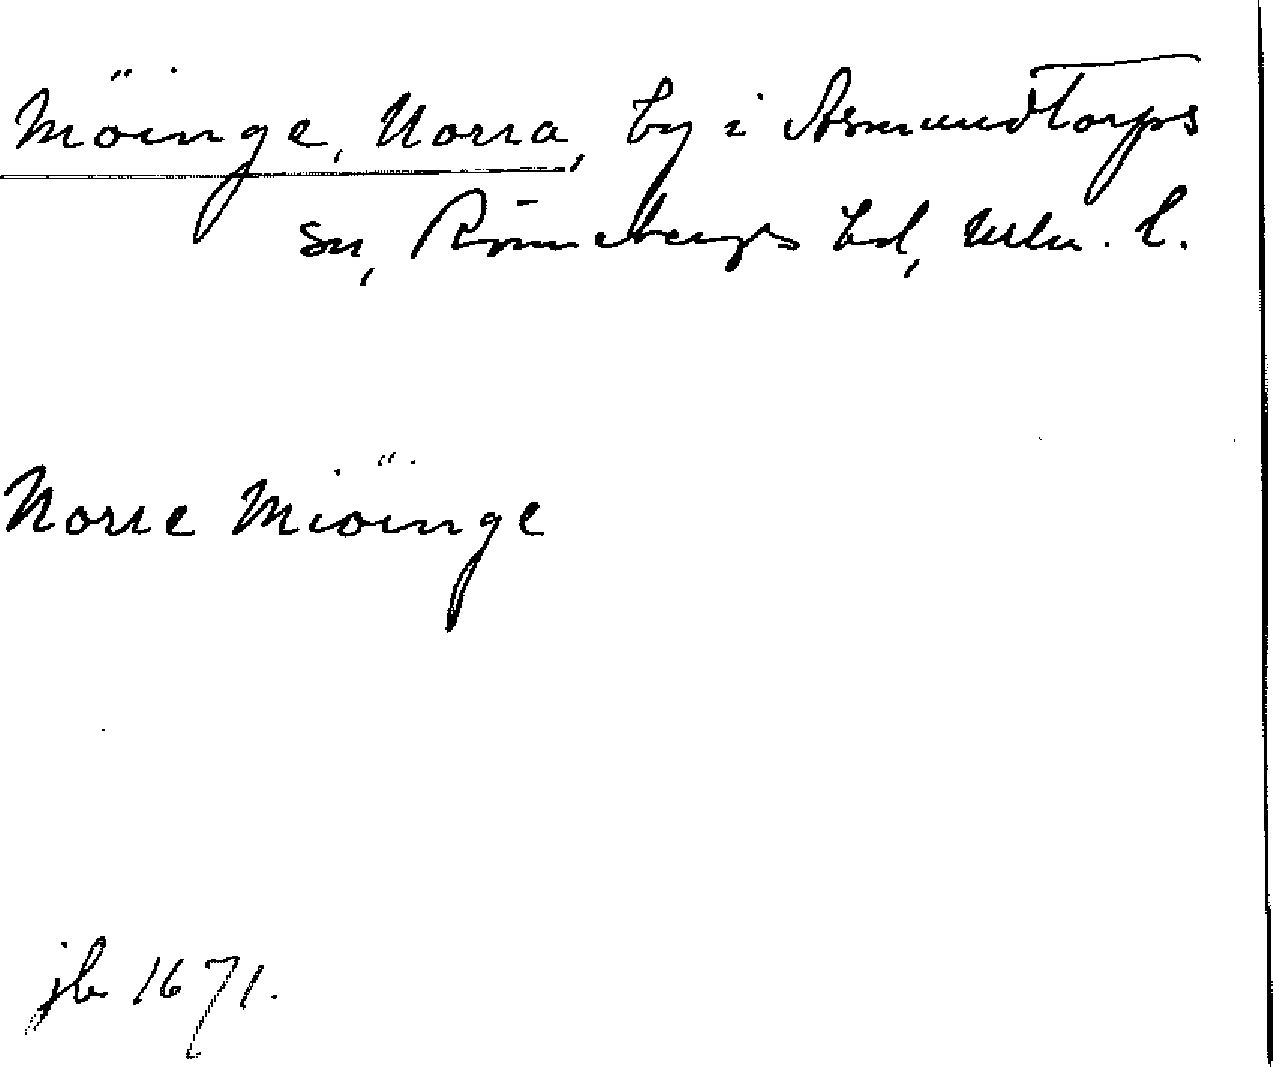 Möinge, Norra, by i Asmundtorps
sn, Rönnebergs hd, Mlm. l.
Norre Miöinge
jb 1671.